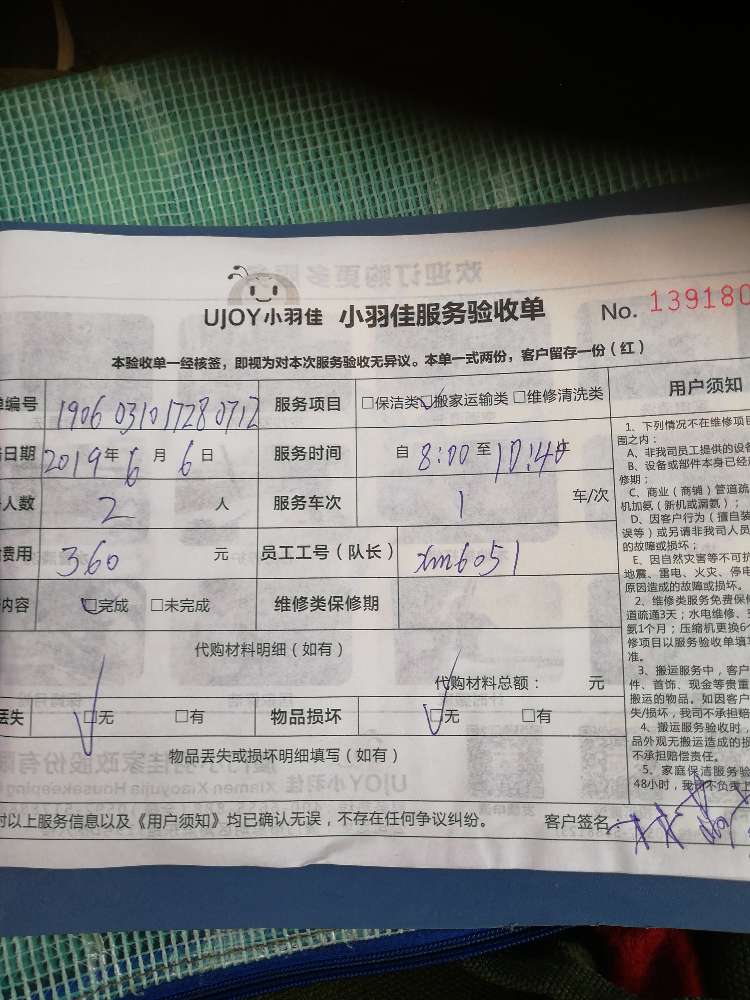 UJOY小羽佳 小羽佳服务验收单 No. 139180
本验收单一经核签，即视为对本次服务验收无异议。本单一式两份，客户留存一份（红）
单编号 1906031017280712 服务项目 □保洁类 □搬家运输类 □维修清洗类
日期 2019年6月6日 服务时间 自 8:00 至 10:40
人数 2 人 服务车次 1 车/次
费用 360 元 员工工号（队长） xm6051
内容 □完成 □未完成 维修类保修期
代购材料明细（如有）
代购材料总额： 元
丢失 □无 □有 物品损坏 □无 □有
物品丢失或损坏明细填写（如有）
对以上服务信息以及《用户须知》均已确认无误，不存在任何争议纠纷。 客户签名
用户须知
1、下列情况不在维修项目
围之内：
A、非我司员工提供的设备
B、设备或部件本身已经过
修期；
C、商业（商铺）管道疏
机加氨（新机或漏氨）；
D、因客户行为（擅自装
误等）或另请非我司人员
的故障或损坏；
E、因自然灾害等不可抗
地震、雷电、火灾、停电
原因造成的故障或损坏。
2、维修类服务免费保修
道疏通3天；水电维修、
氨1个月；压缩机更换6个
修项目以服务验收单填写
准。
3、搬运服务中，客户
件、首饰、现金等贵重
搬运的物品。如因客户
失/损坏，我司不承担赔
4、搬运服务验收时，
品外观无搬运造成的损
不承担赔偿责任。
5、家庭保洁服务验
48小时，我司不负责上